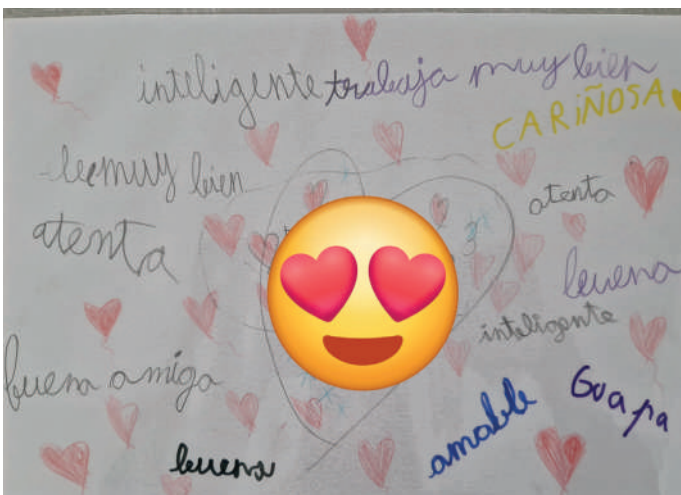 inteligente trabaja muy bien
CARIÑOSA
lee muy bien
atenta
atenta
buena
inteligente
buena amiga
Guapa
amable
buena